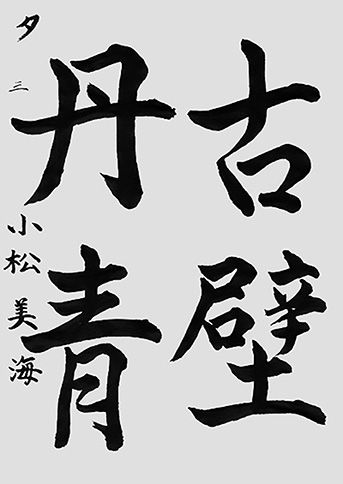 古壁
丹青
夕三
小松美海